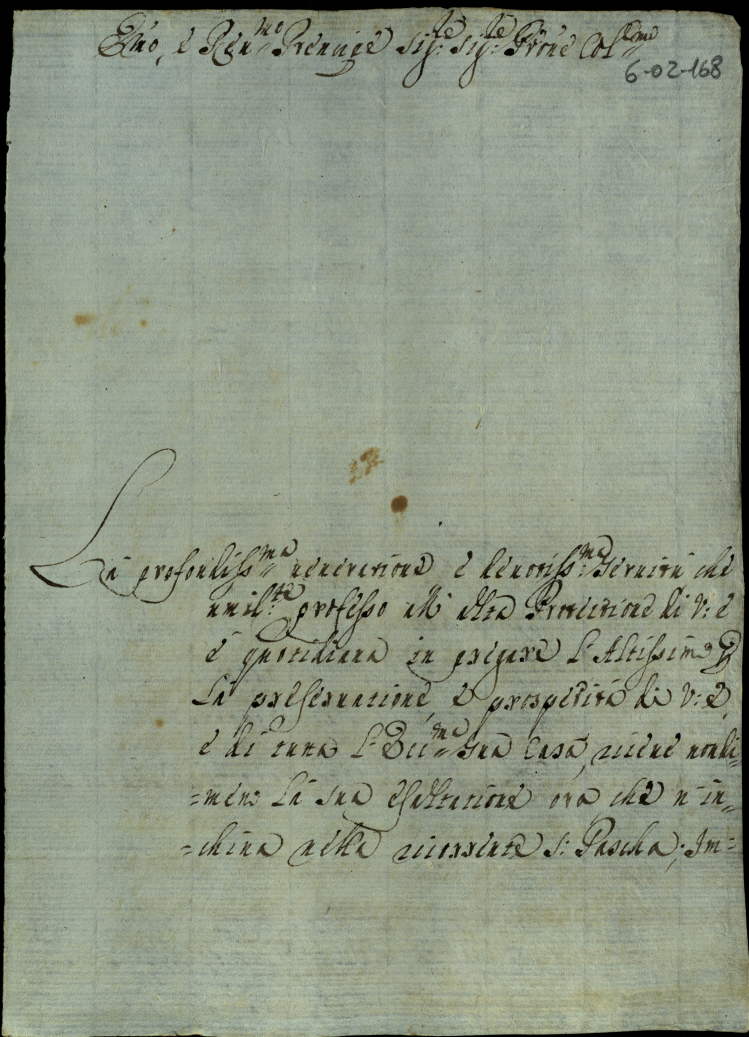 Emo, e Ren:mo Prencipe Sig:re Sig:re Prone Col:mo
6-02-168
La profondiss:ma venerazione e devotiss:ma servitù che
umil:te professo all' alta Protezione di V: E
è quotidiana in pregare L'Altissimo
La preservazione, e prosperità di V: E,
e di tutta L'Ecc:ma sua Casa, viene nondi-
=meno La sua esaltazione ora che n'in-
=china nella ricorrente S: Pascha; Im=